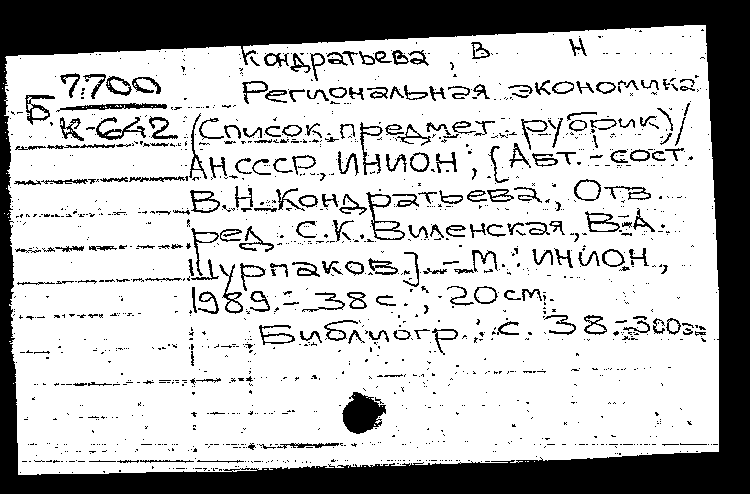 Кондратьева, В Н
Б 7.700
К-642
Региональная экономика
(Список предмет. рубрик)/
АН СССР, ИНИОН; [Авт.-сост.
В.Н. Кондратьева; Отв.
ред. С.К. Виленская, В.А.
Шурпаков]. - М.: ИНИОН,
1989. - 38 с.; 20 см.
Библиогр.: с. 38. - 300э